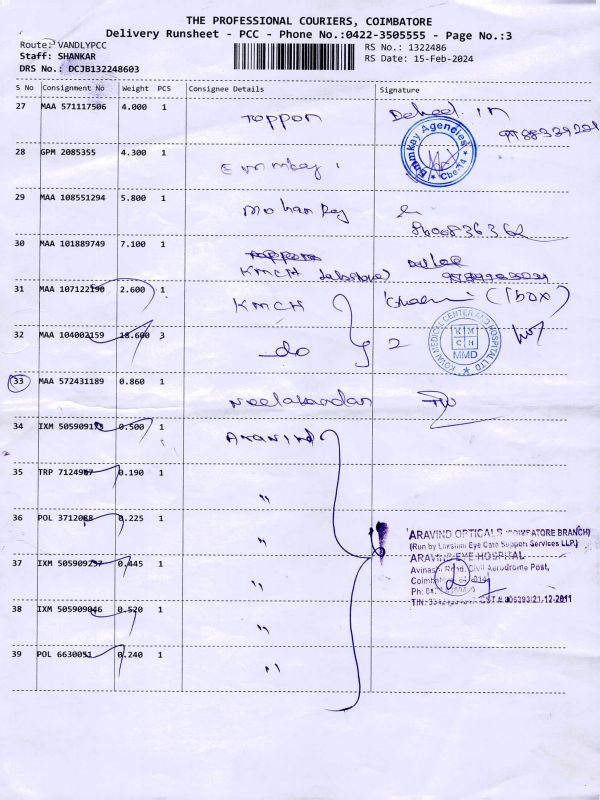 THE PROFESSIONAL COURIERS, COIMBATORE
Delivery Runsheet - PCC - Phone No.:0422-3505555 - Page No.:3
Route: VANDLYPCC
RS No.: 1322486
Staff: SHANKAR
RS Date: 15-Feb-2024
DRS No.: DCJB132248603
S No Consignment No Weight PCS Consignee Details Signature
27 MAA 571117506 4.000 1 Toppon
28 GPM 2085355 4.300 1
Coimkay Agencies
Cbe-14
29 MAA 108551294 5.800 1 Mohan Raj
30 MAA 101889749 7.100 1
KMCH
31 MAA 107122190 2.600 1 KMCH (1box)
32 MAA 104002159 18.600 3 do 2
KOVAI MEDICAL CENTER AND HOSPITAL LTD
KMCH
MMD
33 MAA 572431189 0.860 1 Neelakandan
34 IXM 505909173 0.500 1 Aravind
35 TRP 7124967 0.190 1 "
36 POL 3712088 0.225 1 "
ARAVIND OPTICALS (COIMBATORE BRANCH)
(Run by Lakshmi Eye Care Support Services LLP.)
ARAVIND EYE HOSPITAL
37 IXM 505909237 0.445 1 "
Avinashi Road, Civil Aerodrome Post,
38 IXM 505909046 0.520 1 "
39 POL 6630051 0.240 1 "